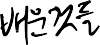 배운것들